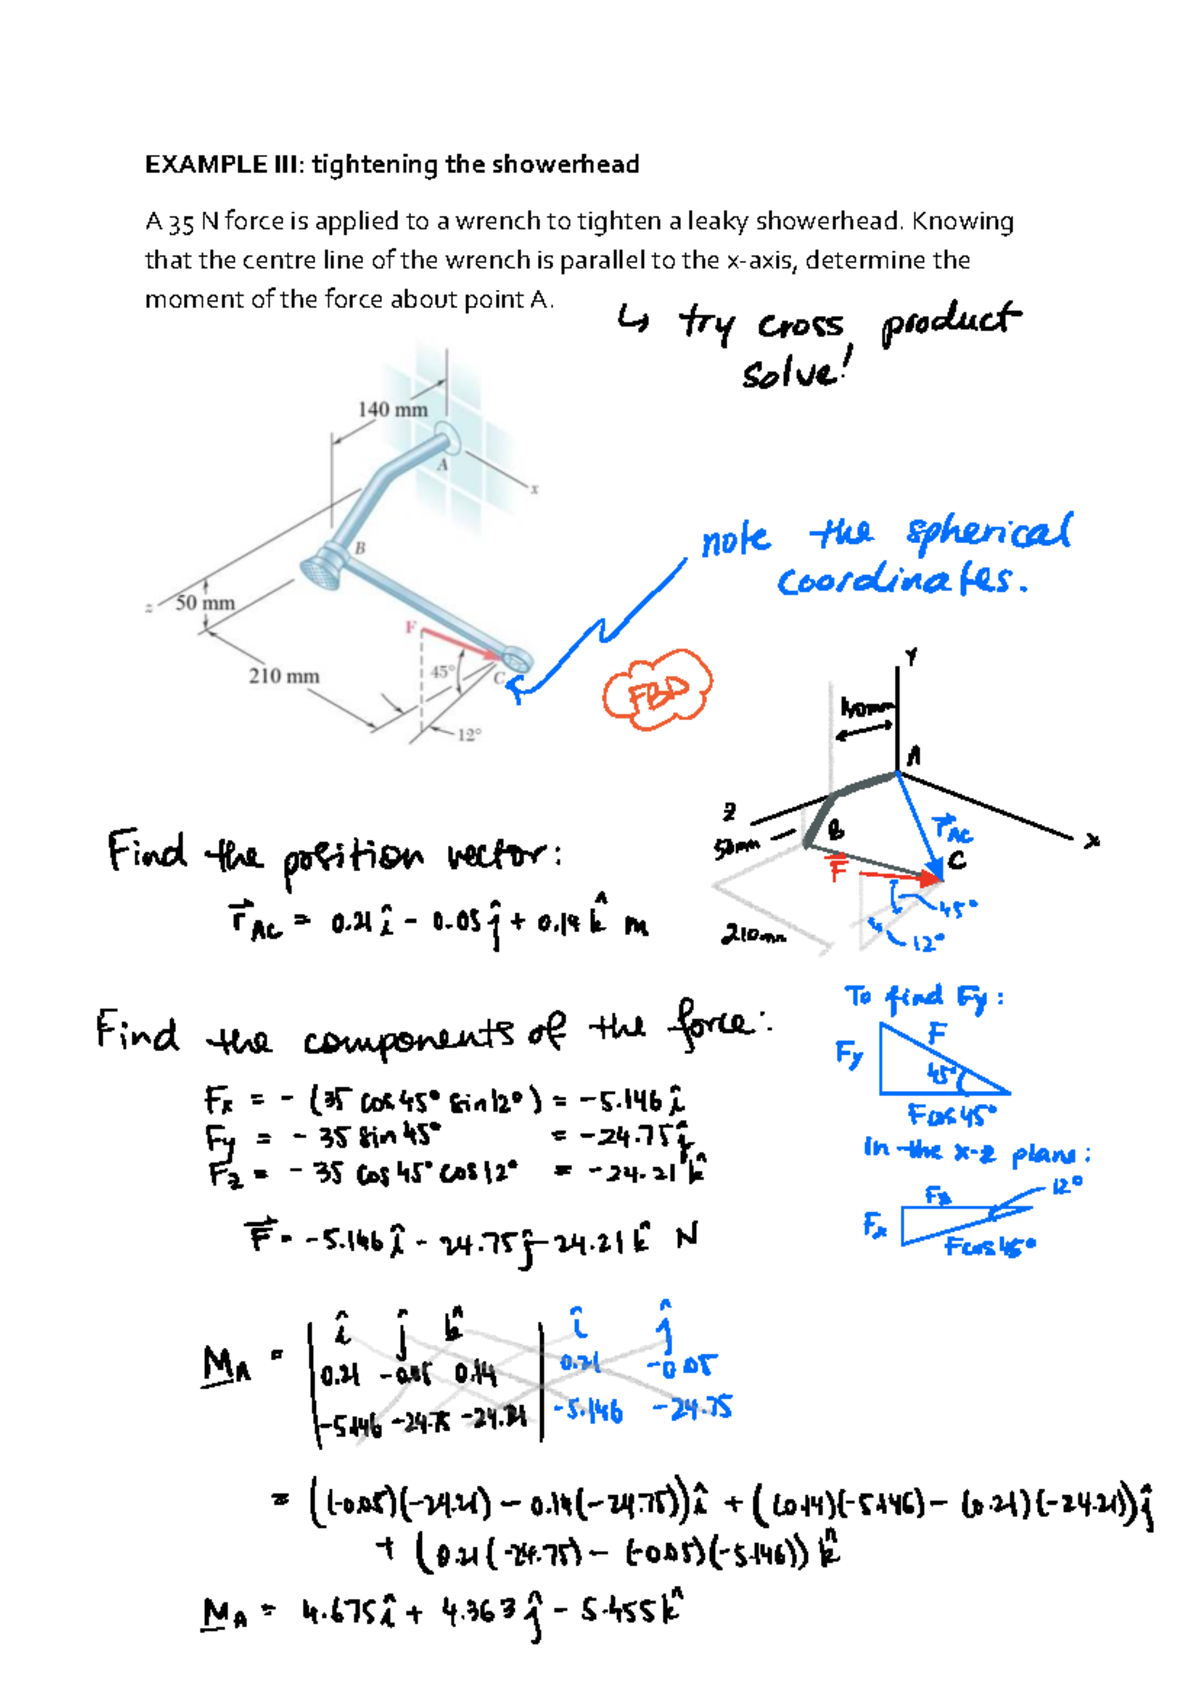 EXAMPLE III: tightening the showerhead
A 35 N force is applied to a wrench to tighten a leaky showerhead. Knowing
that the centre line of the wrench is parallel to the x-axis, determine the
moment of the force about point A.
↳ try cross product
solve!
140 mm
A
x
B
z
50 mm
F
210 mm
45°
C
12°
note the spherical
coordinates.
FBD
Y
140mm
A
Z
50mm
B
r⃗AC
C
X
F⃗
45°
210mm
12°
Find the position vector:
r⃗AC = 0.21 î - 0.05 ĵ + 0.14 k̂ m
To find Fy:
F
Fy
45°
Fcos45°
Find the components of the force:
Fx = - (35 cos45° sin12°) = -5.146 î
Fy = - 35 sin45° = -24.75 ĵ
Fz = - 35 cos45° cos12° = -24.21 k̂
In the x-z plane:
Fz
12°
Fx
Fcos45°
F⃗ = -5.146 î - 24.75 ĵ - 24.21 k̂ N
î ĵ k̂ î ĵ
MA = 0.21 -0.05 0.14 0.21 -0.05
-5.146 -24.75 -24.21 -5.146 -24.75
= ((-0.05)(-24.21) - 0.14(-24.75)) î + ((0.14)(-5.146) - (0.21)(-24.21)) ĵ
+ (0.21(-24.75) - (-0.05)(-5.146)) k̂
MA = 4.675 î + 4.363 ĵ - 5.455 k̂